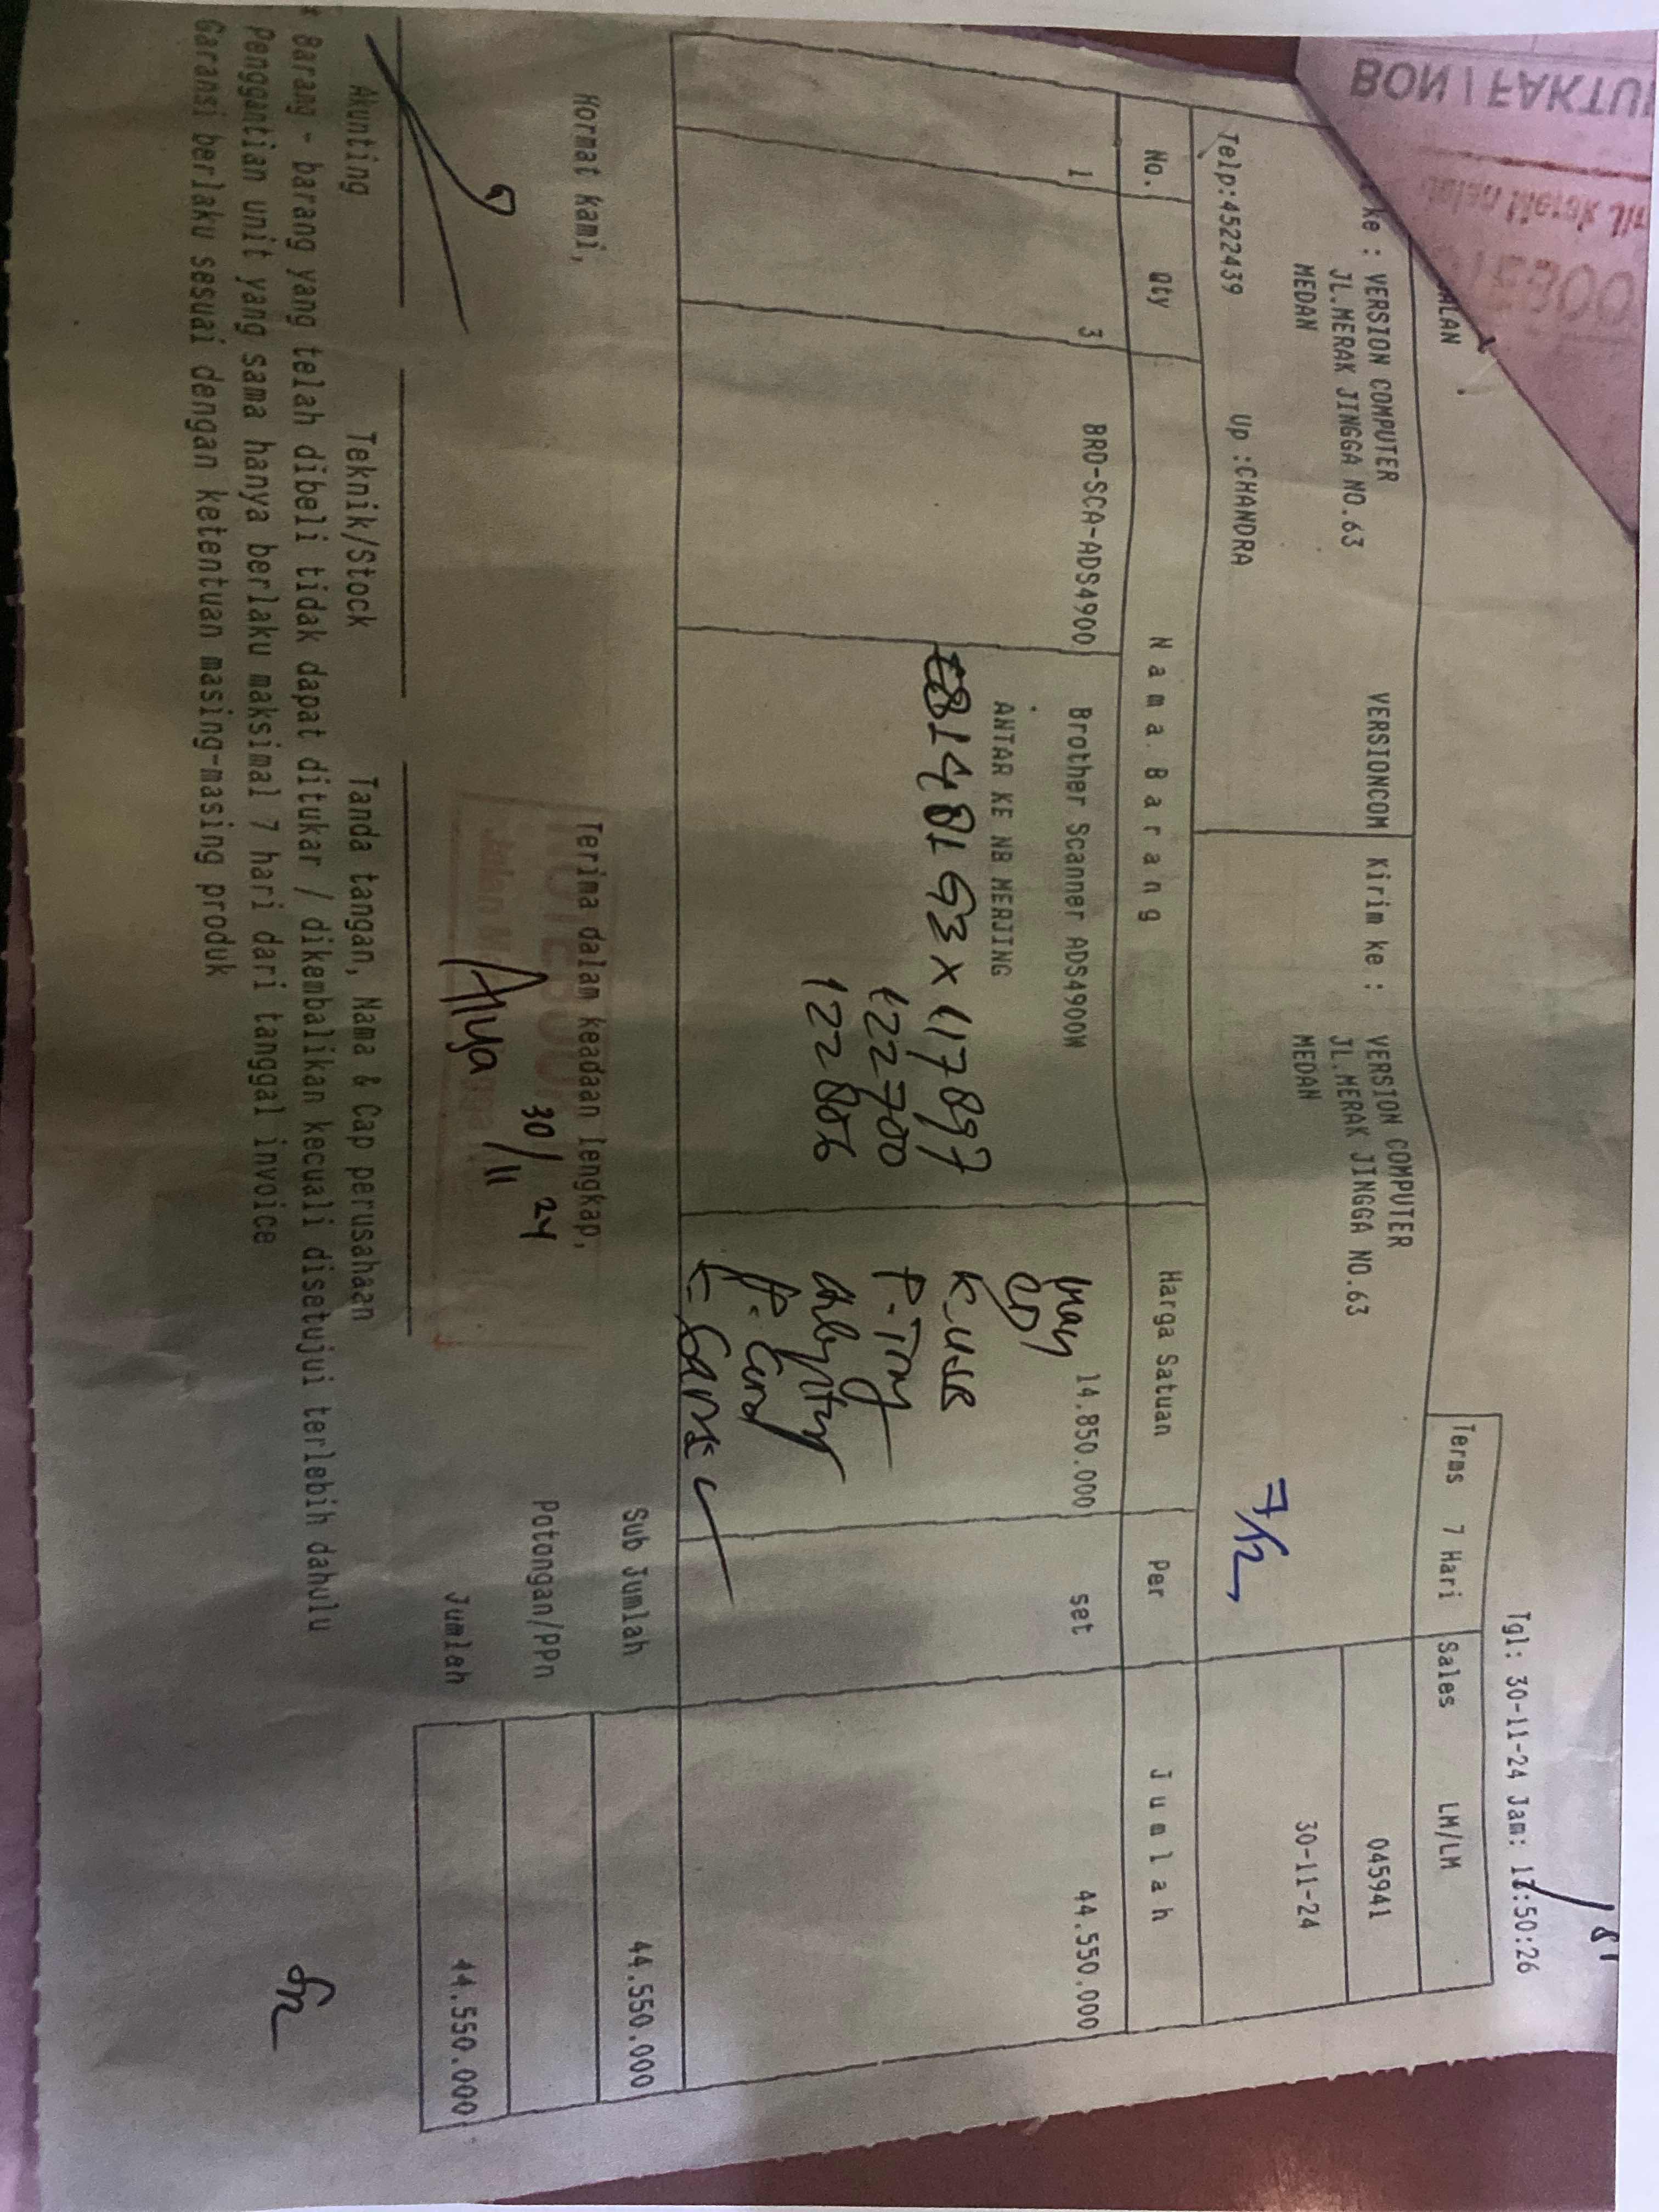 BON / FAKTU
Tgl: 30-11-24 Jam: :50:26
ALAN
Terms 7 Hari Sales LM/LM
ke : VERSION COMPUTER VERSIONCOM Kirim ke : VERSION COMPUTER 045941
JL.MERAK JINGGA NO.63 JL.MERAK JINGGA NO.63
MEDAN MEDAN 30-11-24
7/12
Telp:4522439 Up :CHANDRA
No. Qty Nama Barang Harga Satuan Per Jumlah
1 3 BRO-SCA-ADS4900 Brother Scanner ADS4900W 14.850.000 set 44.550.000
ANTAR KE NB MERJING
K. USB
117897
122700
122806
Hormat kami, Terima dalam keadaan lengkap, Sub Jumlah 44.550.000
30/11 24
Potongan/PPn
Jumlah 44.550.000
Akunting Teknik/Stock Tanda tangan, Nama & Cap perusahaan
* Barang - barang yang telah dibeli tidak dapat ditukar / dikembalikan kecuali disetujui terlebih dahulu
Penggantian unit yang sama hanya berlaku maksimal 7 hari dari tanggal invoice
Garansi berlaku sesuai dengan ketentuan masing-masing produk